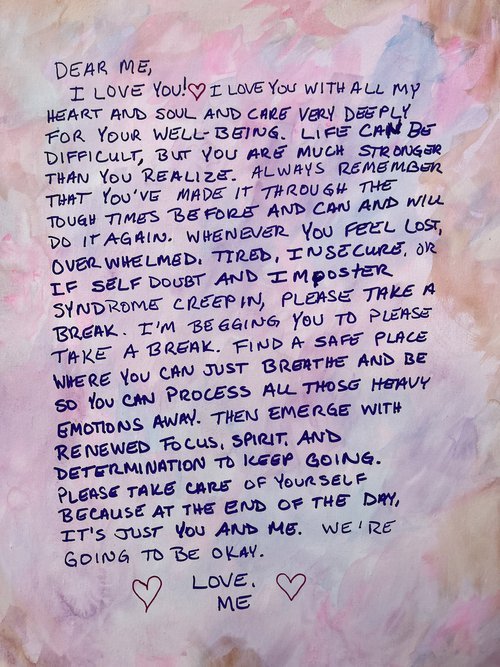 DEAR ME,
I LOVE YOU!♡ I LOVE YOU WITH ALL MY
HEART AND SOUL AND CARE VERY DEEPLY
FOR YOUR WELL-BEING. LIFE CAN BE
DIFFICULT, BUT YOU ARE MUCH STRONGER
THAN YOU REALIZE. ALWAYS REMEMBER
THAT YOU'VE MADE IT THROUGH THE
TOUGH TIMES BEFORE AND CAN AND WILL
DO IT AGAIN. WHENEVER YOU FEEL LOST,
OVERWHELMED, TIRED, INSECURE, OR
IF SELF DOUBT AND IMPOSTER
SYNDROME CREEP IN, PLEASE TAKE A
BREAK. I'M BEGGING YOU TO PLEASE
TAKE A BREAK. FIND A SAFE PLACE
WHERE YOU CAN JUST BREATHE AND BE
SO YOU CAN PROCESS ALL THOSE HEAVY
EMOTIONS AWAY. THEN EMERGE WITH
RENEWED FOCUS, SPIRIT, AND
DETERMINATION TO KEEP GOING.
PLEASE TAKE CARE OF YOURSELF
BECAUSE AT THE END OF THE DAY,
IT'S JUST YOU AND ME. WE'RE
GOING TO BE OKAY.
♡ LOVE, ♡
ME